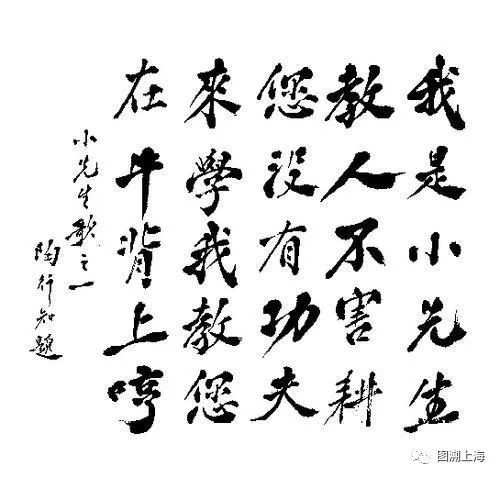 我是小先生
教人不害耕
您没有功夫
來學我教您
在牛背上哼
小先生歌之一
陶行知題
图溯上海